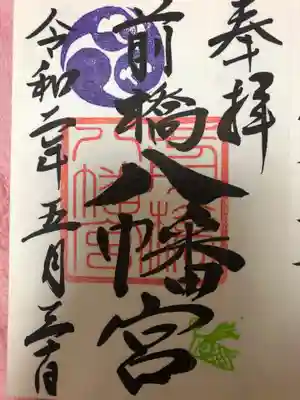 奉拝
前橋八幡宮
令和二年五月三十日